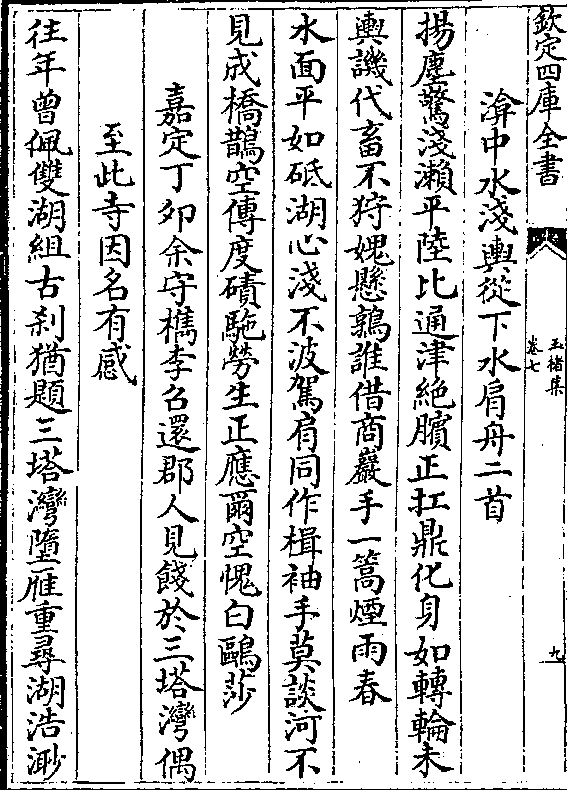 欽定四庫全書
玉楮集
卷七
九
渰中水淺輿從下水肩舟二首
揚塵驚淺瀨平陸比通津絶臏正扛鼎化身如轉輪未
輿譏代畜不狩媿懸鶉誰借商巖手一篙煙雨春
水面平如砥湖心淺不波駕肩同作楫袖手莫談河不
見成橋鵲空傳度磧駞勞生正應爾空愧白鷗莎
嘉定丁夘余守檇李召還郡人見餞於三塔灣偶
至此寺因名有感
往年曾佩雙湖組古刹猶題三塔灣墮雁重尋湖浩渺